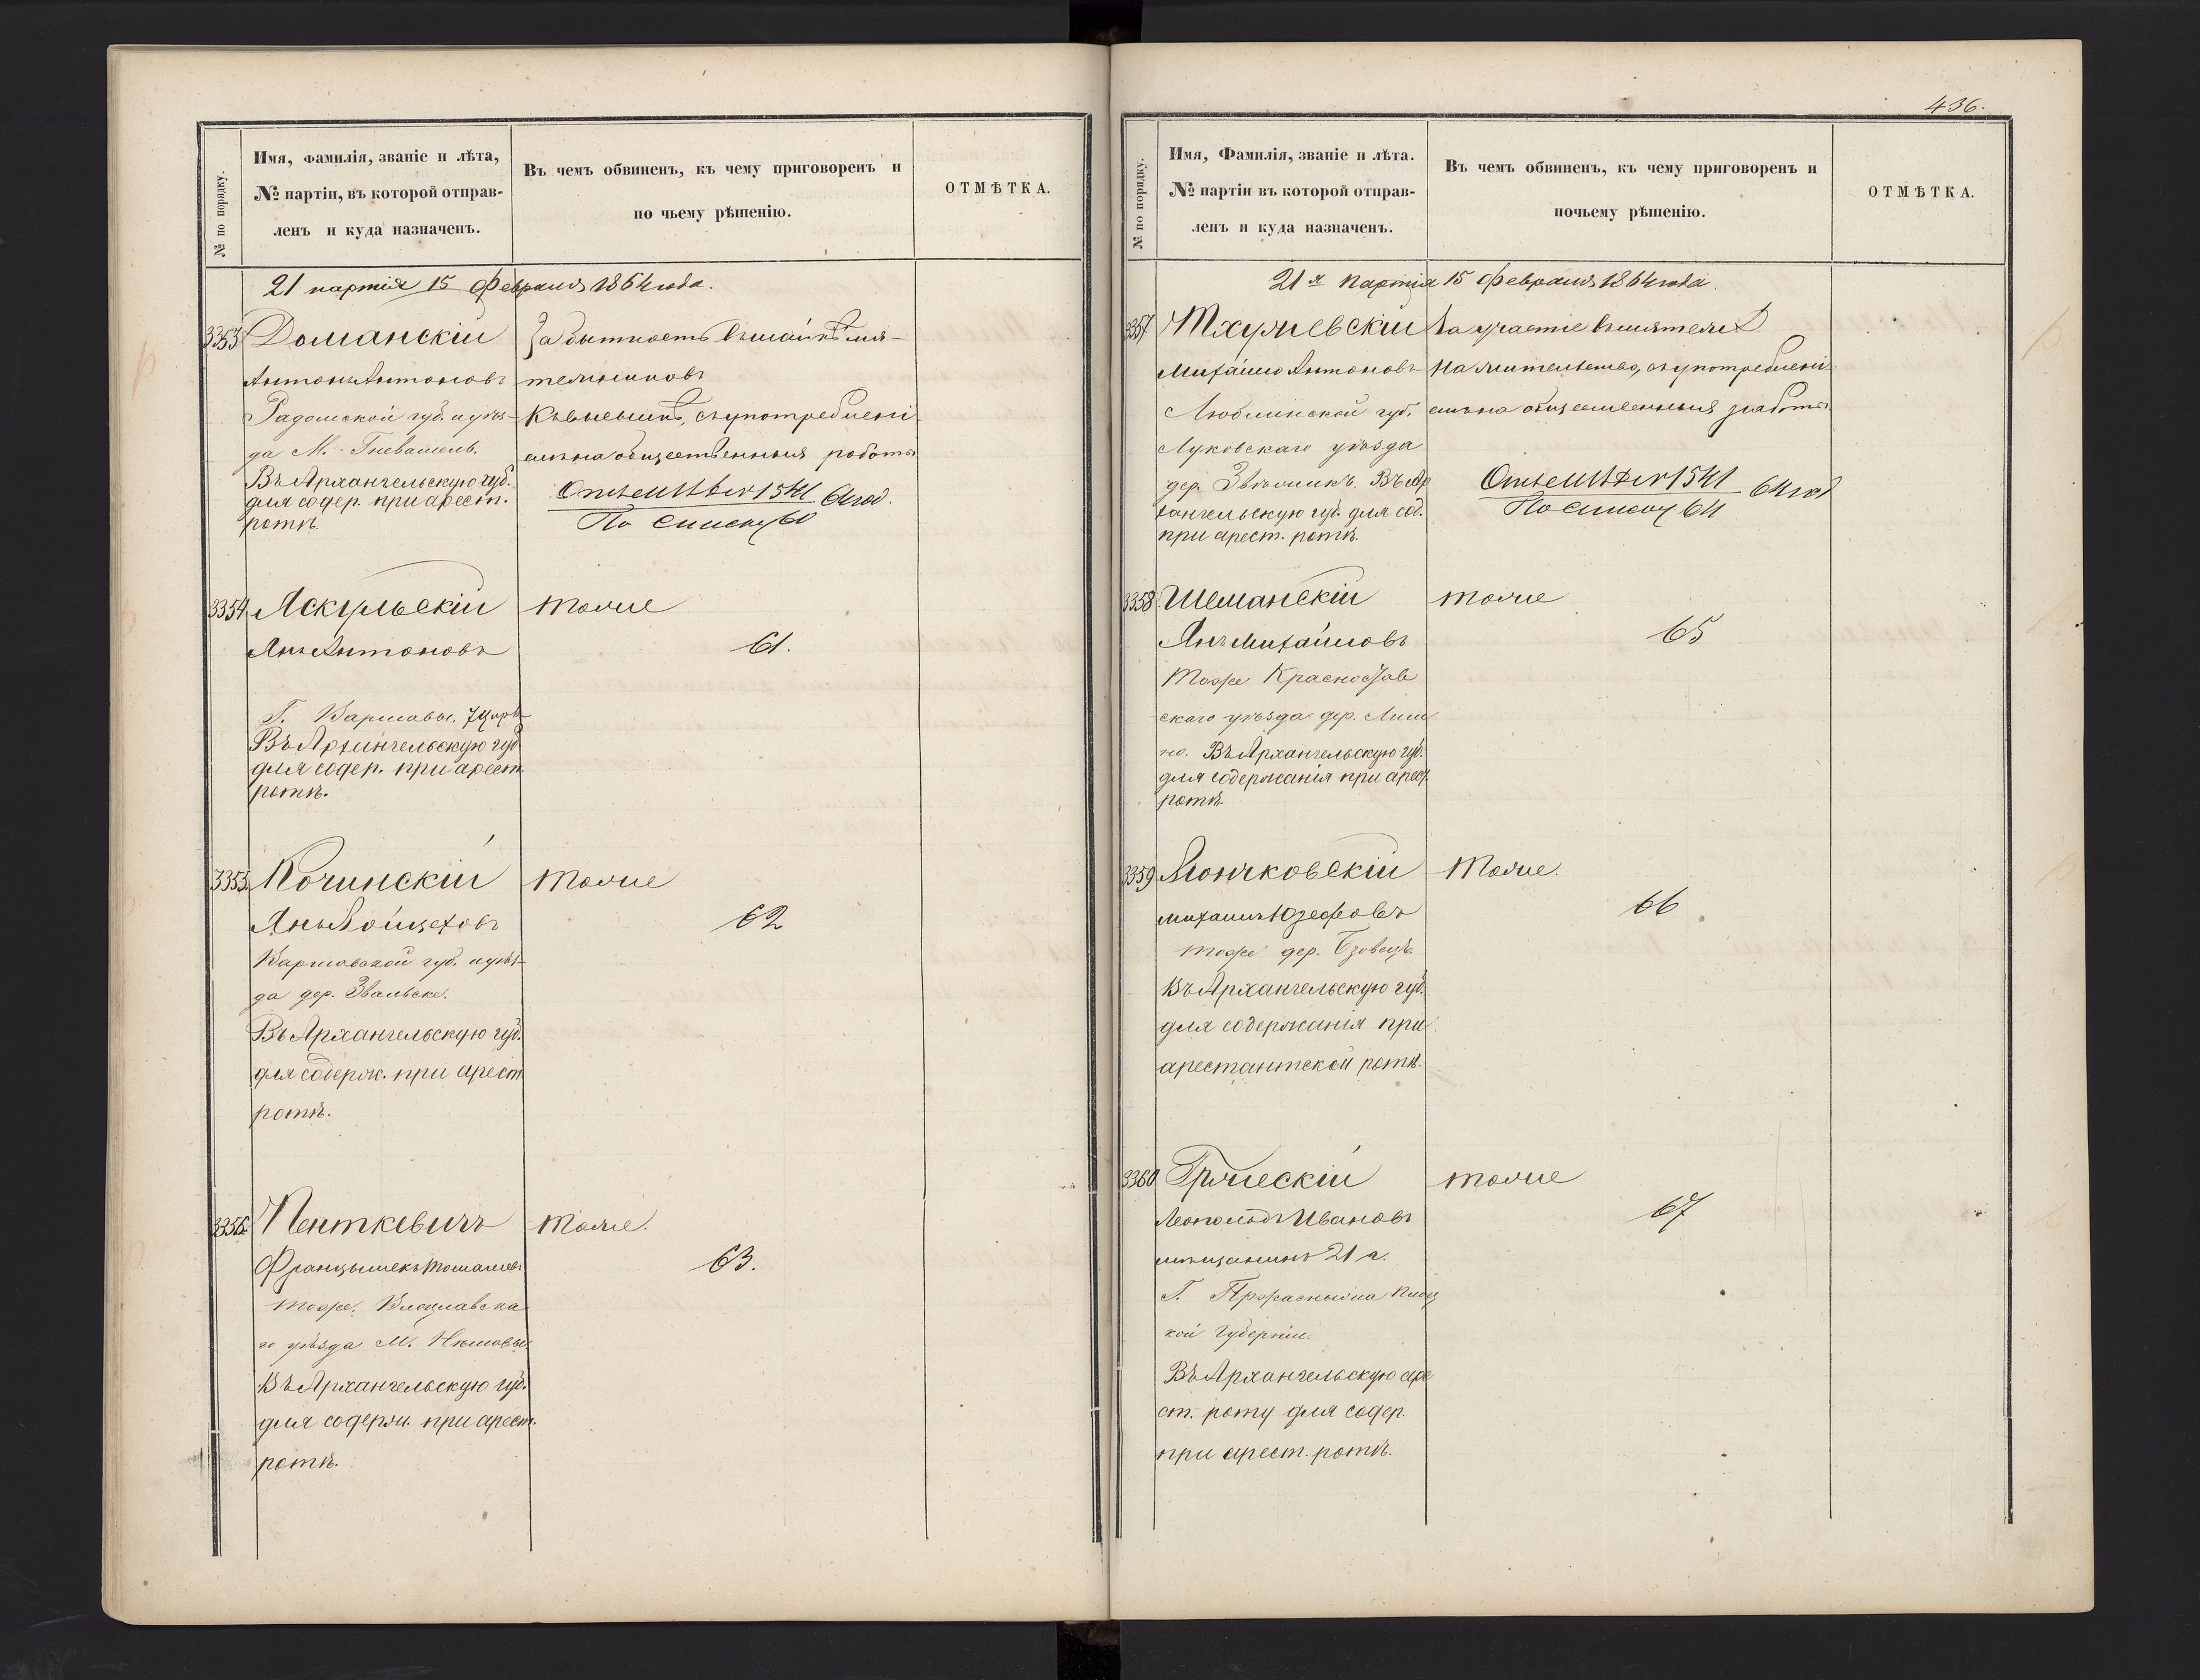 № по порядку.
Имя, фамилія, званіе и лѣта,
№ партіи, въ которой отправ-
ленъ и куда назначенъ.
Въ чемъ обвиненъ, къ чему приговоренъ и
по чьему рѣшенію.
ОТМѢТКА.
21 партія 15 Февраля 1864 года.
3353
Доманскій
Антонъ Антоновъ
Радомской губ. и уѣз-
да М. Гневашевъ.
Въ Архангельскую губ.
для содер. при арест.
ротѣ.
За бытность въ шайкѣ мя-
тежниковъ
Къ высылкѣ, съ употребленi-
емъ на общественныя работы
1541 64 год.
По списку 60
3354
Яскульскій
Янъ Антоновъ
Г. Варшавы, 7 Цирк.
Въ Архангельскую губ
для содер. при арест
ротѣ.
тоже
61.
3355.
Кочинскій
Янъ Войцеховъ
Варшавской губ. и уѣз-
да дер. Звальске.
Въ Архангельскую губ.
для содерж. при арест
ротѣ.
тоже
62
3356.
Пенткевичъ
Францышекъ Томашевъ
тоже, Влоцлавска
го уѣзда М.
Въ Архангельскую губ.
для содерж. при арест.
ротѣ.
тоже.
63.
436.
№ по порядку.
Имя, Фамилія, званіе и лѣта.
№ партіи въ которой отправ-
ленъ и куда назначенъ.
Въ чемъ обвиненъ, къ чему приговоренъ и
почьему рѣшенію.
ОТМѢТКА.
21я партія 15 Февраля 1864 года.
3357
Тхужевскій
Михайло Антоновъ
Люблинской губ.
Луковскаго уѣзда
дер. Въ Ар
хангельскую губ. для сод.
при арест. ротѣ.
За участіе въ мятежѣ
На жительство, съ употребленi-
емъ на общественныя работы
1541 64 год
По списку 64
3358
Шеманскій
Янъ Михайловъ
тоже Красностав
скаго уѣзда дер.
Въ Архангельскую губ.
для содержанія при арест.
ротѣ.
тоже
65
3359
Лончковскій
Михаилъ Юзефовъ
тоже дер. Бзовецъ
Въ Архангельскую губ.
для содержанія при
арестантской ротѣ.
тоже.
66
3360
Гржескій
Леопольдъ Ивановъ
мѣщанинъ 21 л.
Г. Пржасныша Плоц
кой Губерніи.
Въ Архангельскую аре
ст. роту для содер.
при арест. ротѣ.
тоже
67